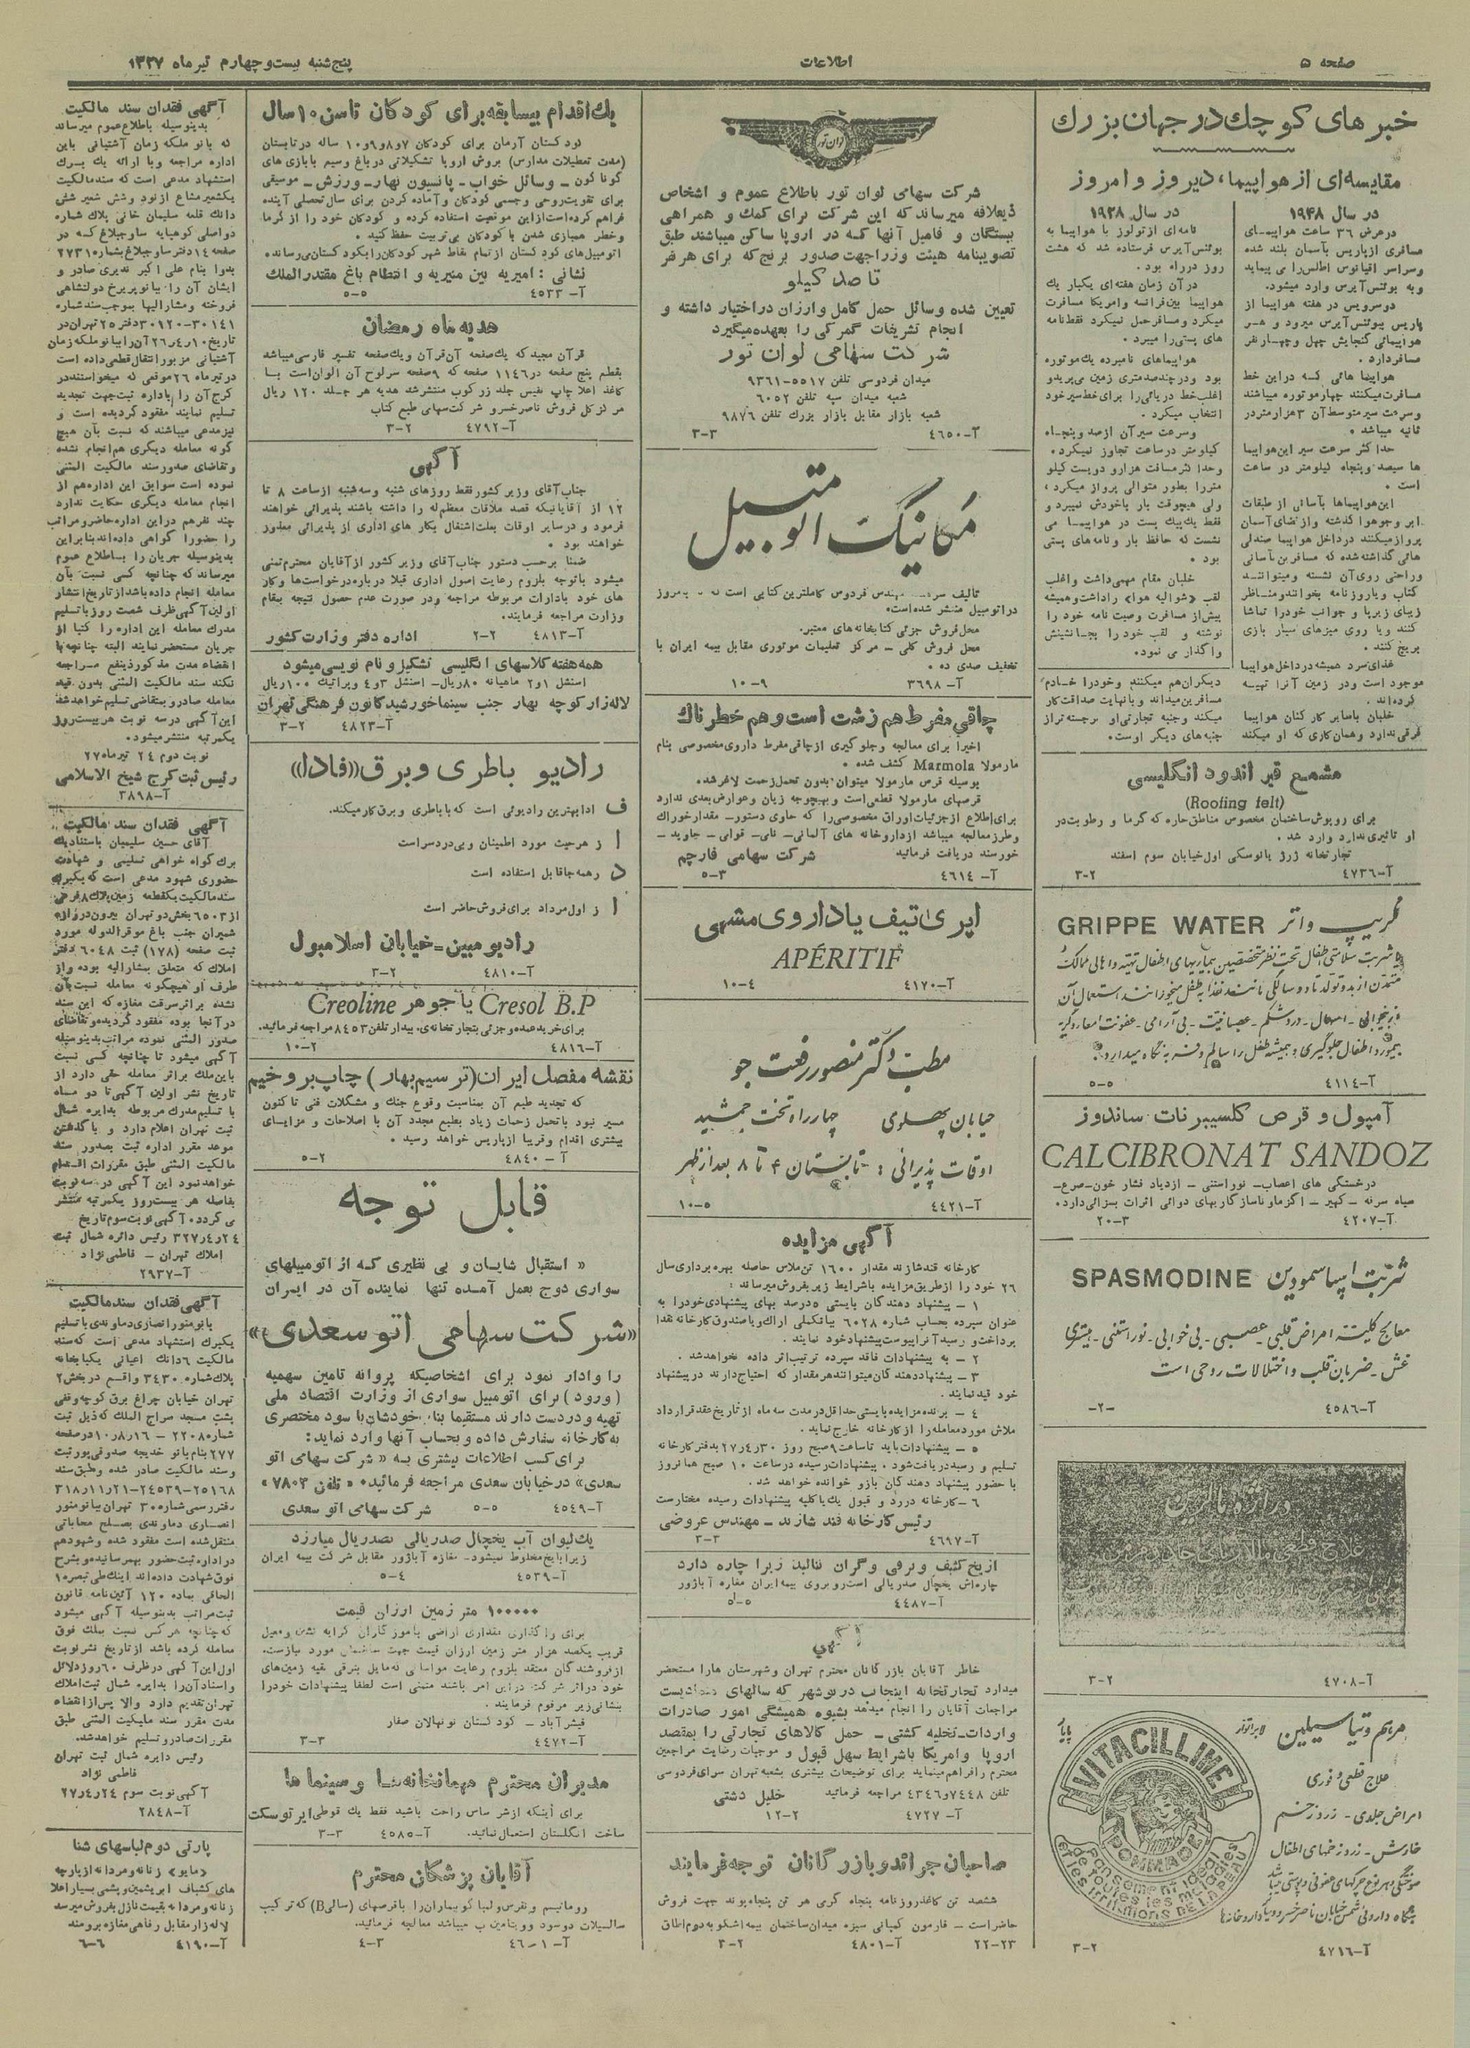 صفحه ۵
اطلاعات
پنج‌شنبه بیست‌و‌چهارم تیر‌ماه ۱۳۲۷
خبرهای کوچک در جهان بزرگ
مقایسه‌ای از هواپیما، دیروز و امروز
در سال ۱۹۴۸
در عرض ۳۶ ساعت هواپیمـای
مسافری از پاریس بآسمان بلند شده
وسراسر اقیانوس اطلس را می پیماید
و به بوئنس‌آیرس وارد میشود.
دوسرویس در هفته هواپیما از
پاریس ببوئنس‌آیرس میرود و هـر
هواپیمائی گنجایش چهل و چهار نفر
مسافر دارد.
هواپیما هائی کـه در این خط
مسافرت میکنند چهارموتوره میباشند
وسرعت سیر متوسط آن ۳ هزارمتر در
ثانیه میباشد.
حداکثر سرعت سیر این هواپیما
ها سیصد وپنجاه کیلومتر در ساعت
است.
این هواپیماها بآسانی از طبقات
ابر وجوهوا گذشته واز فضای آسمان
پرواز میکنند در داخل هواپیما صندلی
هائی گذاشته شده که مسافرین بآسانی
وراحتی روی آن نشسته و میتواننـد
کتاب ویاروزنامه بخوانند ومناظر
زیبای زیرپا و جوانب خود را تماشا
کنند ویا روی میزهای سیار بازی
بریج کنند.
غذای سرد همیشه در داخل هواپیما
موجود است ودر زمین آنرا تهیـه
کرده‌اند.
خلبان باسایر کارکنان هواپیما
فرقی ندارد وهمان کاری که او میکند
در سال ۱۹۲۸
نامه‌ای از تولوز با هواپیما به
بوئنس آیرس فرستاده شد که هشت
روز در راه بود.
در آن زمان هفته‌ای یکبار یك
هواپیما بین فرانسه وامریکا مسافرت
میکرد ومسافر حمل نمیکرد فقط نامه
های پستی را میبرد.
هواپیماهای نامبرده یك موتوره
بود ودرچند صدمتری زمین می‌پریدو
اغلب خط دریائی را برای خط سیر خود
انتخاب میکرد.
وسرعت سیر آن از صد و پنجـاه
کیلومتر در ساعت تجاوز نمیکرد.
وحداکثر مسافت هزارو دویست کیلو
متر را بطور متوالی پرواز میکرد،
ولی هیچوقت بار باخودش نمیبرد و
فقط یك پیك پست در هواپیمـا می
نشست که حافظ بار و نامه‌های پستی
بود.
خلبان مقام مهمی داشت واغلب
لقب «شوالیه هوا» را داشت وهمیشه
پیش از مسافرت وصیت نامه خود را
نوشته و لقب خود را بجـانشینش
واگذار می نمود.
دیگران هم میکنند وخود را خـادم
مسافرین میداند و بانهایت صداقت کار
میکند وجنبه تجارتی او برجسته تر از
جنبه‌های دیگر اوست.
مشمع قیر اندود انگلیسی
(Roofing felt)
برای روپوش ساختمان مخصوص مناطق حاره که گرما و رطوبت در
او تاثیری ندارد وارد شد.
تجارتخانه ژرژ یانوسکی اول خیابان سوم اسفند
آ-۴۷۳۶ ۳-۲
گریپ واتر GRIPPE WATER
آ-۴۱۱۴ ۵-۵
آمپول و قرص کلسیبرنات ساندوز
CALCIBRONAT SANDOZ
در خستگی های اعصاب- نوراستنی - ازدیاد فشار خون-صرع-
سیاه سرفه - کهیر - اگزما و ناسازگاریهای دوائی اثرات بسزائی دارد.
آ-۴۲۰۷ ۲۰-۳
شربت اسپاسمودین SPASMODINE
معالج کلیه امراض قلبی - عصبی - بی خوابی - نوراستنی - هیستری
غش - ضربان قلب و اختلالات روحی است
آ-۴۵۸۶ -۲-
آ-۴۷۰۸ ۳-۲
مرهم ویتاسیلین
علاج قطعی و فوری
امراض جلدی - زرد زخم
خارش - زرد زخمهای اطفال
VITACILLINE
POMMADE
Pansement ideal
de toutes les maladies
et les irritations DE LA PEAU
آ-۴۷۱۶ ۳-۲
لوان تور
شرکت سهامی لوان تور باطلاع عموم و اشخاص
ذیعلاقه میرساند که این شرکت برای کمك و همراهی
بستگان و فامیل آنها کـه در اروپا ساکن میباشند طبق
تصویبنامه هیئت وزرا جهت صدور برنج که برای هر نفر
تا صد کیلو
تعیین شده وسائل حمل کامل وارزان در اختیار داشته و
انجام تشریفات گمرکی را بعهده میگیرد
شرکت سهامی لوان تور
میدان فردوسی تلفن ۵۵۱۷-۹۳۶۱
شعبه میدان سپه تلفن ۶۰۵۲
شعبه بازار مقابل بازار بزرگ تلفن ۹۸۷۶
آ-۴۶۵۰ ۳-۳
مکانیک اتومبیل
محل فروش جزئی کتابخانه های معتبر.
محل فروش کلی - مرکز تعلیمات موتوری مقابل بیمه ایران با
تخفیف صدی ده.
آ-۳۶۹۸ ۱۰-۹
چاقی مفرط هم زشت است و هم خطرناك
اخیرا برای معالجه وجلوگیری از چاقی مفرط داروی مخصوصی بنام
مارمولا Marmola کشف شده.
بوسیله قرص مارمولا میتوان بدون تحمل زحمت لاغر شد.
قرصهای مارمولا قطعی است و بهیچوجه زیان وعوارض بعدی ندارد
برای اطلاع از جزئیات اوراق مخصوصی را که حاوی دستور- مقدار خوراك
وطرز معالجه میباشد از داروخانه های آلمانی- نائی- قوامی - جاوید -
خورسند دریافت فرمائید شرکت سهامی فارچم
آ-۴۶۱۴ ۵-۳
اپری‌تیف یا داروی مشهی
APÉRITIF
آ-۴۱۷۰ ۱۰-۴
مطب دکتر منصور رفعت جو
خیابان پهلوی چهارراه تخت جمشید
اوقات پذیرائی: تابستان ۴ تا ۸ بعدازظهر
آ-۴۴۲۱ ۱۰-۵
آگهی مزایده
کارخانه قند شازند مقدار ۱۶۰۰ تن ملاس حاصله بهره برداری سال
۲۶ خود را از طریق مزایده باشرایط زیر بفروش میرساند:
۱ - پیشنهاد دهندگان بایستی ۵ درصد بهای پیشنهادی خود را به
عنوان سپرده بحساب شماره ۶۰۲۸ بانك ملی اراك و یا صندوق کارخانه نقدا
پرداخت و رسید آنرا پیوست پیشنهاد خود نمایند.
۲ - به پیشنهادات فاقد سپرده ترتیب اثر داده نخواهد شد.
۳ - پیشنهاد دهندگان میتوانند هر مقدار که احتیاج دارند در پیشنهاد
خود قید نمایند.
۴ - برنده مزایده بایستی حداقل در مدت سه ماه از تاریخ عقد قرارداد
ملاس مورد معامله را از کارخانه خارج نماید.
۵ - پیشنهادات باید تا ساعت ۹ صبح روز ۲۷٫۴٫۳۰ بدفتر کارخانه
تسلیم و رسید دریافت شود. پیشنهادات رسیده در ساعت ۱۰ صبح همانروز
با حضور پیشنهاد دهندگان باز و خوانده خواهد شد.
۶ - کارخانه در رد و قبول یك یا کلیه پیشنهادات رسیده مختار است
رئیس کارخانه قند شازند - مهندس عروضی
آ-۴۶۹۷ ۳-۳
از یخ کثیف و برفی و گران ننالید زیرا چاره دارد
چاره‌اش یخچال صدریالی است روبروی بیمه ایران مغازه آباژور
آ-۴۴۸۷ ۵-۵
آگهی
خاطر آقایان بازرگانان محترم تهران و شهرستان ها را مستحضر
میدارد تجارتخانه اینجانب در بوشهر که سالهای متمادیست
مراجعات آقایان را انجام میدهد بشیوه همیشگی امور صادرات
واردات-تخلیه کشتی - حمل کالاهای تجارتی را بمقصد
اروپا وامریکا باشرایط سهل قبول و موجبات رضایت مراجعین
محترم را فراهم مینماید برای توضیحات بیشتری بشعبه تهران سرای فردوسی
تلفن ۷۴۴۸و۴۳۴۶ مراجعه فرمائید خلیل دشتی
آ-۴۷۲۷ ۱۲-۲
صاحبان جرائد و بازرگانان توجه فرمایند
ششصد تن کاغذ روزنامه پنجاه گرمی هر تن پنجاه پوند جهت فروش
حاضر است - فارمون کمپانی سبزه میدان ساختمان بیمه اشکوبه دوم اطاق
۲۲-۲۳ آ-۴۸۰۱ ۳-۲
یك اقدام بیسابقه برای کودکان تا سن ۱۰ سال
کودکستان آرمان برای کودکان ۷و۸و۹و۱۰ ساله در تابستان
(مدت تعطیلات مدارس) بروش اروپا تشکیلاتی در باغ وسیم با بازی های
گوناگون - وسائل خواب - پانسیون نهار- ورزش - موسیقی
برای تقویت روحی وجسمی کودکان و آماده کردن برای سال تحصیلی آینده
فراهم کرده است از این موقعیت استفاده کرده و کودکان خود را از گرما
وخطر همبازی شدن با کودکان بی‌تربیت حفظ کنید.
اتومبیل های کودکستان از تمام نقاط شهر کودکان را بکودکستان می‌رساند.
نشانی: امیریه بین منیریه و انتظام باغ مقتدرالملك
آ-۴۵۳۳ ۵-۵
هدیه ماه رمضان
قرآن مجید که یك صفحه آن قرآن ویك صفحه تفسیر فارسی میباشد
بقطع پنج صفحه در ۱۱۴۶ صفحه که ۹ صفحه سرلوح آن الوان است بـا
کاغذ اعلا چاپ نفیس جلد زرکوب منتشر شد هدیه هر جـلد ۱۲۰ ریال
مرکز کل فروش ناصر خسرو شرکت سهامی طبع کتاب
آ-۴۷۹۲ ۳-۲
آگهی
جناب آقای وزیر کشور فقط روزهای شنبه وسه شنبه از ساعت ۸ تا
۱۲ از آقایانیکه قصد ملاقات معظم له را داشته باشند پذیرائی خواهند
فرمود و در سایر اوقات بعلت اشتغال بکار های اداری از پذیرائی معذور
خواهند بود.
ضمنا برحسب دستور جناب آقای وزیر کشور از آقایان محترم تمنی
میشود باتوجه بلزوم رعایت اصول اداری قبلا درباره درخواست‌ها وکار
های خود بادارات مربوطه مراجعه ودر صورت عدم حصول نتیجه بمقام
وزارت مراجعه فرمایند.
آ-۴۸۱۳ ۲-۲ اداره دفتر وزارت کشور
همه هفته کلاسهای انگلیسی تشکیل و نام نویسی میشود
اسنشل ۱و۲ ماهیانه ۸۰ ریال- اسنشل ۳و۴ و پراتیك ۱۰۰ ریال
لاله زار کوچه بهار جنب سینما خورشید کانون فرهنگی تهران
آ-۴۸۲۳ ۳-۲
رادیو باطری و برق «فادا»
ف ادا بهترین رادیوئی است که با باطری و برق کار میکند.
ا ز هر حیث مورد اطمینان و بی دردسر است
د رهمه جا قابل استفاده است
ا ز اول مرداد برای فروش حاضر است
رادیو مبین-خیابان اسلامبول
آ-۴۸۱۰ ۳-۲
Cresol B.P یا جوهر Creoline
برای خرید عمده وجزئی بتجارتخانه‌ی بیدار تلفن ۸۴۵۳ مراجعه فرمائید.
آ-۴۸۱۶ ۱۰-۲
نقشه مفصل ایران (ترسیم بهار) چاپ بروخیم
که تجدید طبع آن بمناسبت وقوع جنك و مشکلات فنی تاکنون
میسر نبود باتحمل زحمات زیاد بطبع مجدد آن با اصلاحات و مزایـای
بیشتری اقدام وقریبا از پاریس خواهد رسید.
آ-۴۸۴۰ ۵-۲
قابل توجه
« استقبال شایان و بی نظیری که از اتومبیلهای
سواری دوج بعمل آمده تنها نماینده آن در ایران
«شرکت سهامی اتو سعدی»
را وادار نمود برای اشخاصیکه پروانه تامین سهمیه
(ورود) برای اتومبیل سواری از وزارت اقتصاد ملی
تهیه و در دست دارند مستقیما بنام خودشان با سود مختصری
به کارخانه سفارش داده و بحساب آنها وارد نماید:
برای کسب اطلاعات بیشتری به « شرکت سهامی اتو
سعدی» در خیابان سعدی مراجعه فرمائید. « تلفن ۷۸۰۴ »
آ-۴۵۴۹ ۵-۵ شرکت سهامی اتو سعدی
یك لیوان آب یخچال صدریالی بصد ریال میارزد
زیرا بایخ مخلوط نمیشود- مغازه آباژور مقابل شرکت بیمه ایران
آ-۴۵۳۹ ۵-۴
۱۰۰۰۰۰ متر زمین ارزان قیمت
خود در اثر شرکت در این امر باشند متمنی است لطفا پیشنهادات خود را
بنشانی زیر مرقوم فرمایند.
قیشرآباد - کودکستان نونهالان صفار
آ-۴۴۷۲ ۳-۳
مدیران محترم مهمانخانه‌ها و سینما ها
برای اینکه از شر ساس راحت باشید فقط یك قوطی ایرتوسکت
ساخت انگلستان استعمال نمائید. آ-۴۵۸۵ ۳-۳
آقایان پزشکان محترم
روماتیسم و نقرس ولمباگو بیماران را باقرصهای (سالیB) که ترکیب
سالیسیلات دوسود و ویتامین ب میباشد معالجه فرمائید.
آ-۴۶۰۱ ۴-۳
آگهی فقدان سند مالکیت
بدینوسیله باطلاع عموم میرساند
که بانو ملکه زمان آشتیانی باین
اداره مراجعه وبا ارائه یك بـرك
استشهاد مدعی است که سند مالکیت
یکشعیر مشاع از نود وشش شعیر شش
دانك قلعه سلیمان خانی پلاك شماره
دو اصلی کوهپایه ساوجبلاغ کـه در
صفحه ۱۴ دفتر ساوجبلاغ بشماره ۲۷۳۱
بدوا بنام علی اکبر نذیری صادر و
ایشان آن را ببانو پریرخ دولتشاهی
فروخته ومشارالیها بموجب سند شماره
۳۰۱۴۱-۳۰۱۲۰ دفتر ۲۵ تهران در
تاریخ ۲۶٫۴٫۱۰ آن را ببانو ملکه زمان
آشتیانی مزبور انتقال قطعی داده است
در تیر ماه ۲۶ موقعی که میخواستند در
کرج آن را باداره ثبت جهت تجدید
تسلیم نمایند مفقود گردیده است و
نیز مدعی میباشند که نسبت بآن هیچ
گونه معامله دیگری هم انجام نشده
وتقاضای صدور سند مالکیت المثنی
نموده است سوابق این اداره هم از
انجام معامله دیگری حکایت ندارد
چند نفر هم در این اداره حاضر و مراتب
را حضورا گواهی داده‌اند بنابراین
بدینوسیله جریان را بـاطلاع عموم
میرساند که چنانچه کسی نسبت بآن
معامله انجام داده باشد از تاریخ انتشار
اولین آگهی ظرف شصت روز با تسلیم
مدرك معامله این اداره را کتبا از
جریان مستحضر نمایند البته چنانچه با
انقضاء مدت مذکور ذینفع مـراجعه
نکند سند مالکیت المثنی بدون قیـد
معامله صادر و بمتقاضی تسلیم خواهد شد
این آگهی در سه نوبت هر بیست روز
یکمرتبه منتشر میشود.
نوبت دوم ۲۴ تیر ماه ۲۷
رئیس ثبت کرج شیخ الاسلامی
آ-۳۸۹۸
آگهی فقدان سند مالکیت
آقای حسین سلیمیان باستناد یك
برك گواه خواهی تسلیمی و شهادت
حضوری شهود مدعی است که یکبرك
سند مالکیت یکقطعه زمین پلاك ۸ فرعی
از ۶۵۰۳ بخش دو تهران بیرون دروازه
شمیران جنب باغ موقر الدوله مورد
ثبت صفحه (۱۷۸) ثبت ۶۰۴۸ دفتر
املاك که متعلق بمشارالیه بوده واز
طرف او هیچگونه معامله نسبت بآن
نشده براثر سرقت مغازه که این سند
در آنجا بوده مفقود گردیده و تقاضای
صدور المثنی نموده مراتب بدینوسیله
آگهی میشود تا چنانچه کسی نسبت
باین ملك براثر معامله حقی دارد از
تاریخ نشر اولین آگهی تا دو مـاه
با تسلیم مدرك مربوطه بدایره شمال
ثبت تهران اعلام دارد و با گذشتن
موعد مقرر اداره ثبت بصدور سند
مالکیت المثنی طبق مقررات اقـدام
خواهد نمود این آگهی در سه نوبت
بفاصله هر بیست روز یکمرتبه منتشر
می گردد. آگهی نوبت سوم تاریخ
۳۲۷٫۴٫۲۴ رئیس دائره شمال ثبت
املاك تهران - فاطمی نژاد
آ-۲۹۳۷
آگهی فقدان سند مالکیت
بانو منور انصاری دماوندی با تسلیم
یکبرك استشهاد مدعی است که سند
مالکیت ۶ دانك اعیانی یکبابخانه
پلاك شماره ۳۴۳۰ واقع در بخش ۲
تهران خیابان چراغ برق کوچه وقفی
پشت مسجد سراج الملك که ذیل ثبت
شماره ۲۲۰۸ - ۱۰٫۸٫۱۶ در صفحه
۲۷۷ بنام بانو خدیجه صدوقی پور ثبت
وسند مالکیت صادر شده و طبق سند
۲۵۱۶۸-۲۴۵۳۹-۳۱۸٫۱۱٫۲۱
دفتر رسمی شماره ۳۰ تهران ببانو منور
انصاری دماوندی بصلح محاباتی
منتقل شده است مفقود شده و شهود هم
در اداره ثبت حضور بهمرسانیده و بشرح
فوق شهادت داده‌اند اینك طی تبصره ۱
الحاقی بماده ۱۲۰ آئین نامه قانون
ثبت مراتب بدینوسیله آگهی میشود
که چنانچه هر کس نسبت بملك فوق
معامله کرده باشد از تاریخ نشر نوبت
اول این آگهی در ظرف ۶۰ روز دلائل
واسناد آن را بدایره شمال ثبت املاك
تهران تقدیم دارد والا پس از انقضاء
مدت مقرر سند مالکیت المثنی طبق
مقررات صادر و تسلیم خواهد شد.
رئیس دایره شمال ثبت تهران
فاطمی نژاد
آگهی نوبت سوم ۲۷٫۴٫۲۴
آ-۲۸۴۸
پارتی دوم لباسهای شنا
«مایو» زنانه و مردانه از پارچه
های کشباف ابریشمی و پشمی بسیار اعلا
زنانه و مردانه بقیمت نازل بفروش میرسد
لاله زار مقابل رفاهی مغازه برومند
آ-۴۱۹۰ ۶-۶